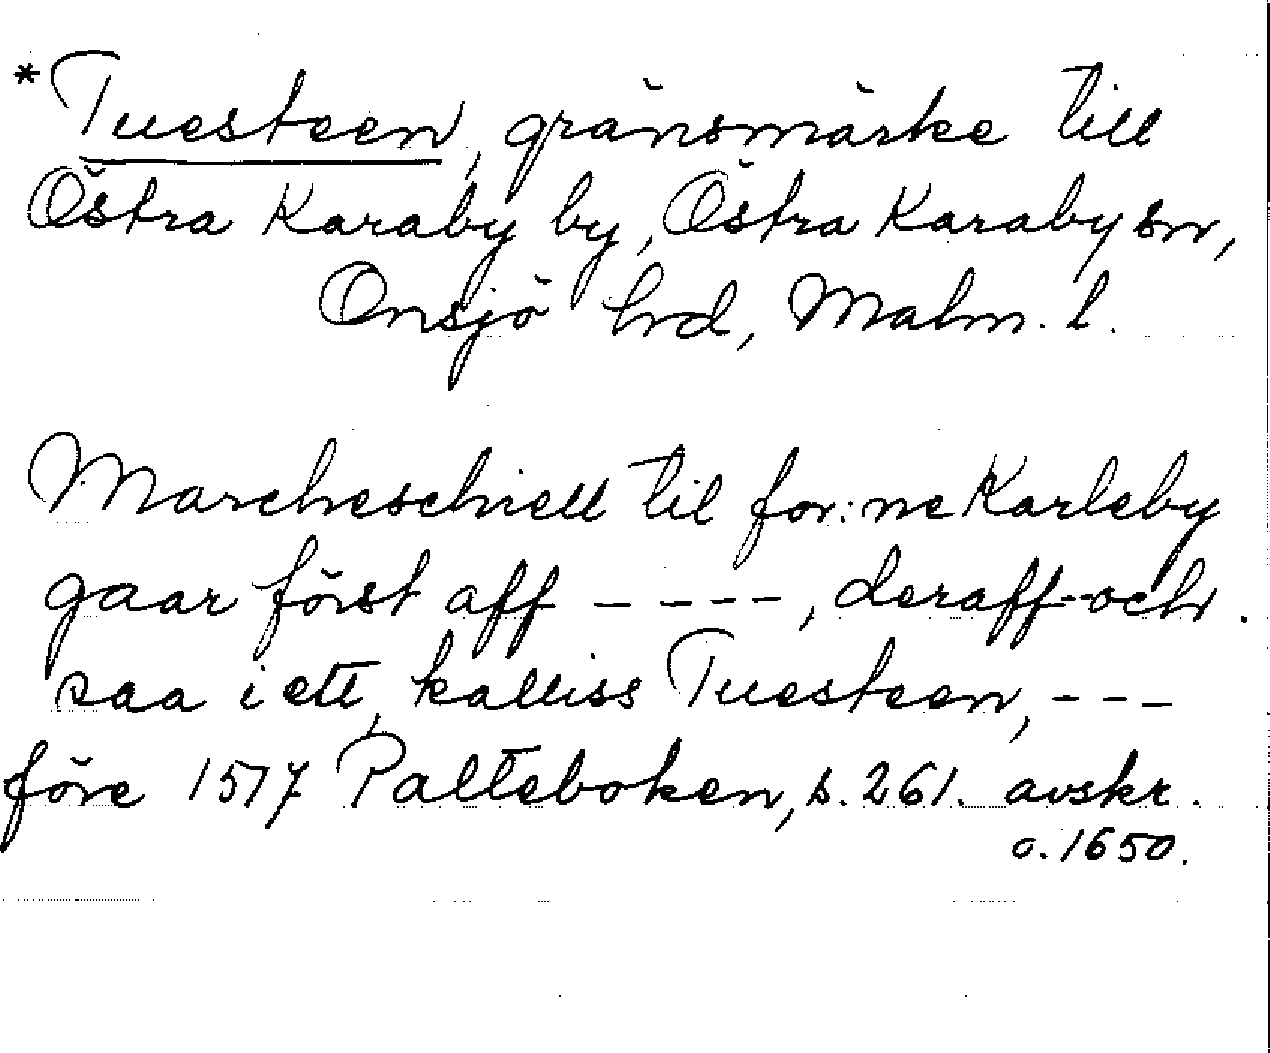 *Tuesteen, gränsmärke till
Östra Karaby by, Östra Karaby sn,
Onsjö hrd, Malm. l.
Marcheschiell til for:ne Karleby
gaar först aff ----, deraff och
saa i ett, kalliss Tuesteen, ---
före 1517 Palteboken, s. 261. avskr.
c. 1650.